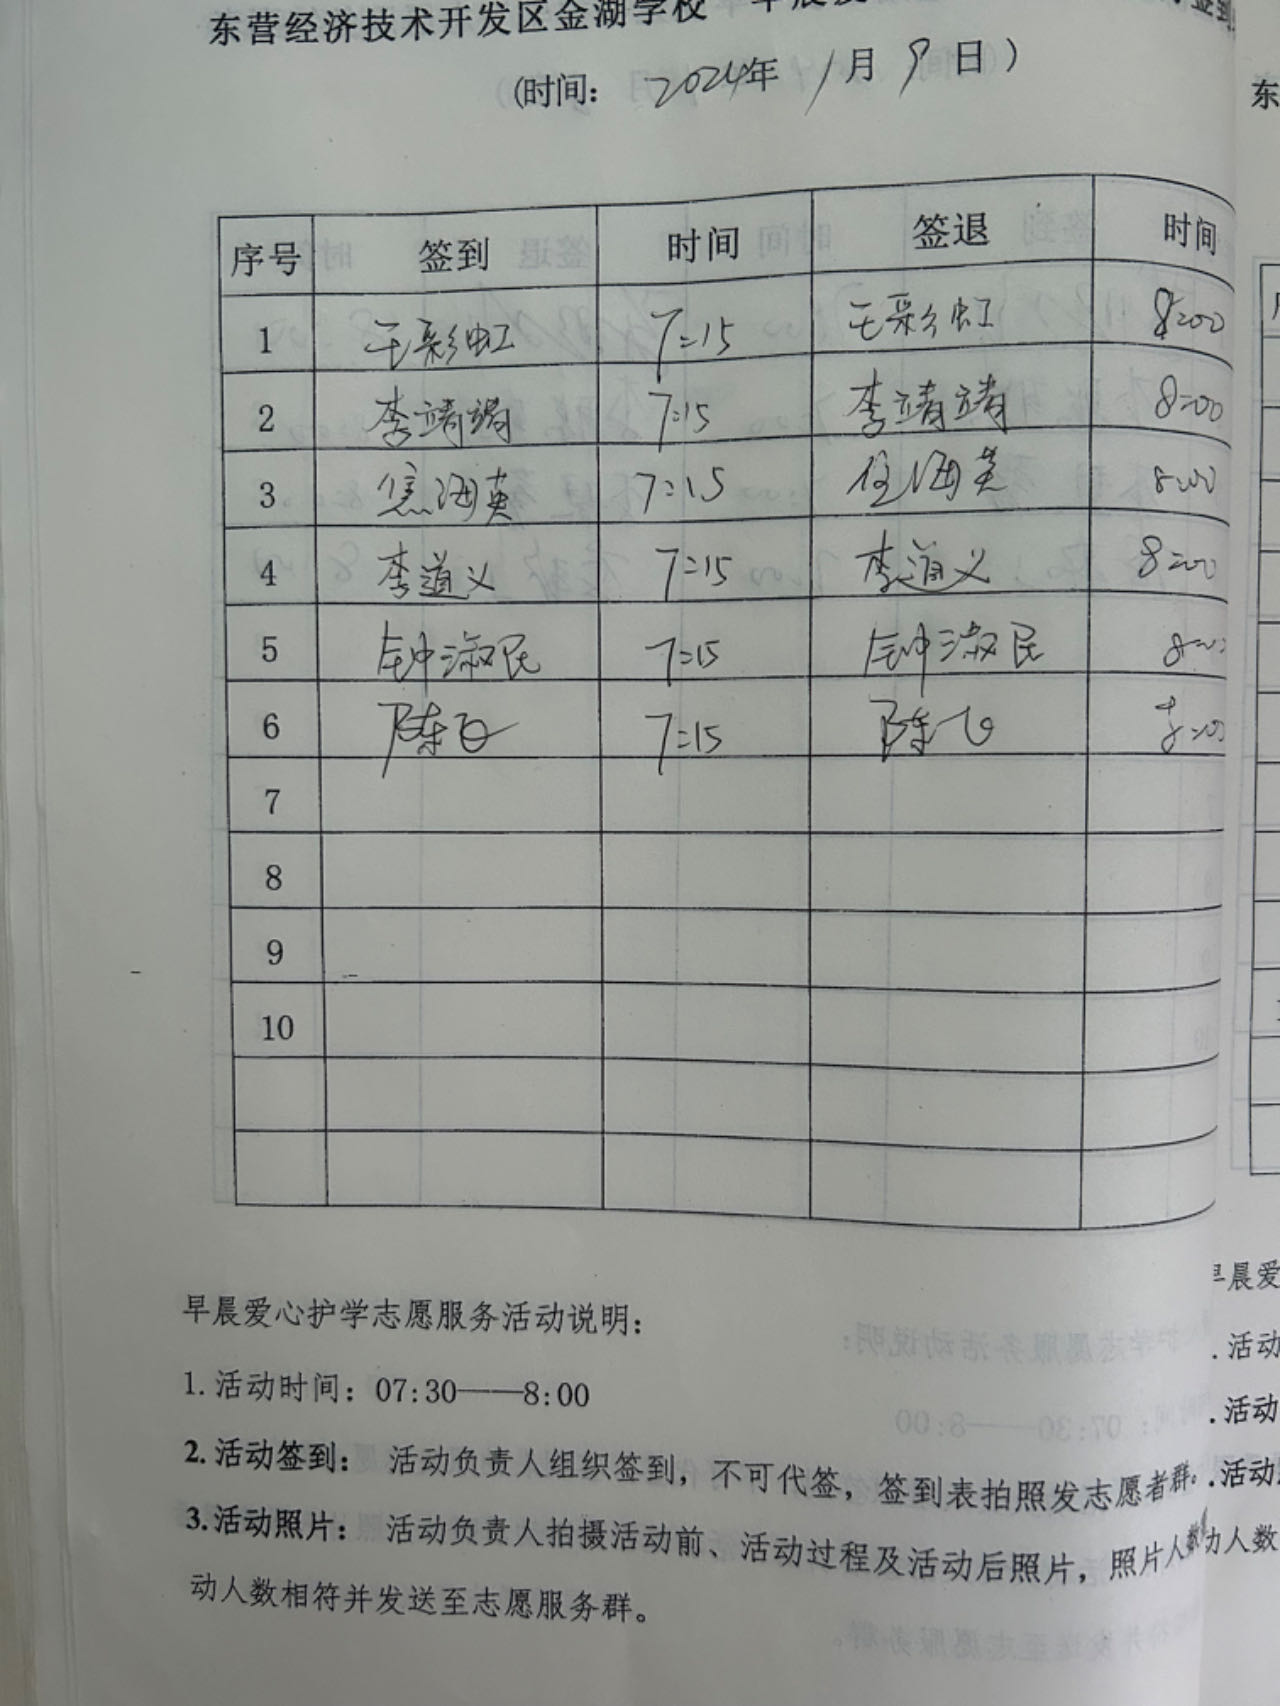 东营经济技术开发区金湖学校
(时间: 2024年 1月 9日)
序号 签到 时间 签退 时间
1 王彩虹 7:15 王彩虹 8:00
2 李靖靖 7:15 李靖靖 8:00
3 焦海英 7:15 焦海英 8:00
4 李道义 7:15 李道义 8:00
5 钟淑民 7:15 钟淑民 8:00
6 陈飞 7:15 陈飞 8:00
7
8
9
10
早晨爱心护学志愿服务活动说明:
1. 活动时间: 07:30——8:00
2. 活动签到: 活动负责人组织签到,不可代签,签到表拍照发志愿者群.
3. 活动照片: 活动负责人拍摄活动前、活动过程及活动后照片,照片人数
动人数相符并发送至志愿服务群。
东
早晨爱
. 活动
. 活动
. 活动
动人数